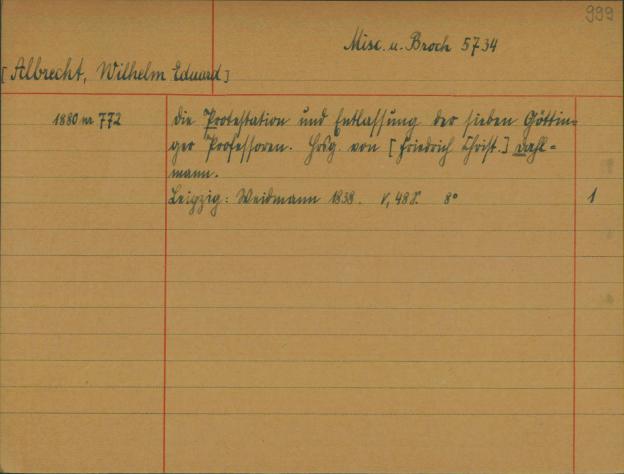 999
Misc. u. Broch 5734
[Albrecht, Wilhelm Eduard]
1880 nr 772
Die Protestation und Entlassung der sieben Göttin=
ger Professoren. Hrsg. von [Friedrich Christ.] Dahl=
mann.
Leipzig: Weidmann 1838. V, 48 S. 8°
1